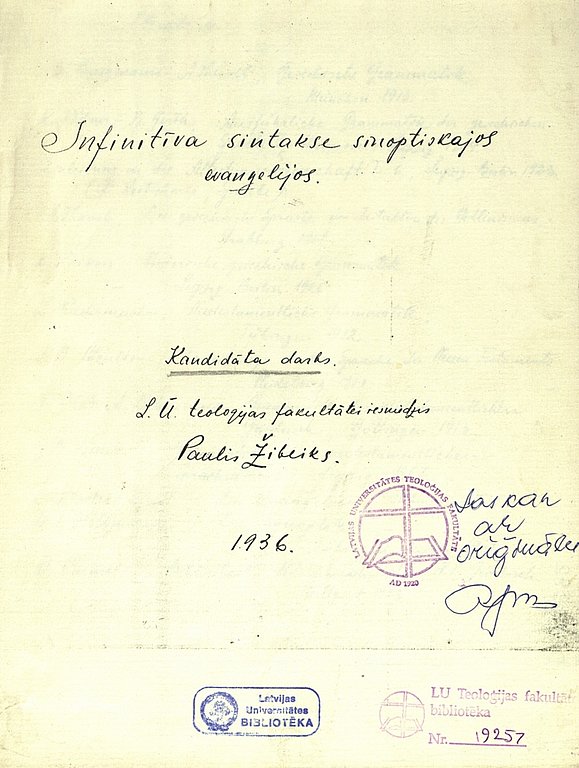 Infinitīva sintakse sinoptiskajos
evangelijos.
Kandidāta darbs.
L. Ū. teoloģijas fakultātei iesniedzis
Paulis Žibeiks.
1936.
LATVIJAS UNIVERSITĀTES TEOLOĢIJAS FAKULTĀTE
AD 1920
Saskan
ar
oriģinālu
Latvijas
Universitātes
BIBLIOTĒKA
LU Teoloģijas fakultāt
bibliotēka
Nr. 19257